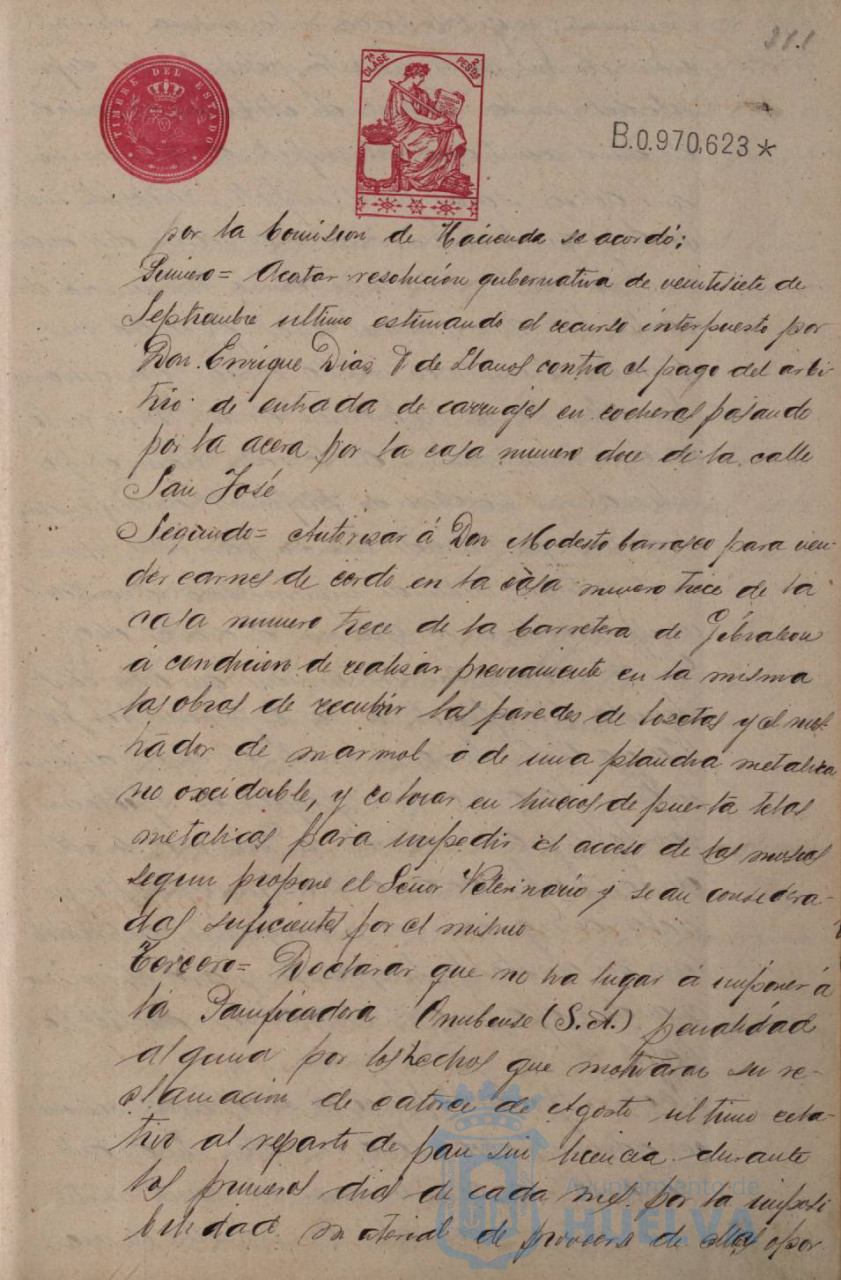 211
TIMBRE DEL ESTADO
7ª CLASE
2 PESTAS
B.0.970,623*
por la Comision de Hacienda se acordó:
Primero= Acatar resolución gubernativa de veintisiete de
Septiembre ultimo estimando el recurso interpuesto por
Don Enrique Diaz F de Llanos contra el pago del arbi-
trio de entrada de carruajes en cocheras pasando
por la acera por la casa numero doce de la calle
San José
Segundo= Autorizar á Don Modesto Carrasco para ven-
der carnes de cerdo en la casa numero trece de la
casa numero trece de la Carretera de Gibraleon
á condicion de realizar previamente en la misma
las obras de recubrir las paredes de losetas y el mos-
trador de marmol ó de una plancha metalica
no oxidable, y colocar en huecos de puerta telas
metalicas para impedir el acceso de las moscas
segun propone el Señor Veterinario y sean considera-
das suficientes por el mismo
Tercero= Declarar que no ha lugar á imponer á
la Panificadora Onubense (S.A.) penalidad
alguna por los hechos que motivaron su re-
clamacion de catorce de Agosto ultimo rela-
tivo al reparto de pan sin licencia durante
los primeros dias de cada mes por la imposi
bilidad material de proveerse de ellas opor
Ayuntamiento de
HUELVA